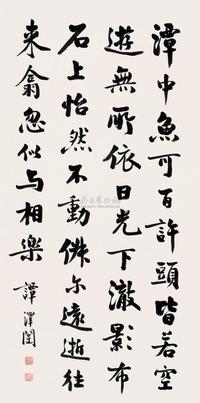 潭中魚可百許頭皆若空
遊無所依日光下澈影布
石上怡然不動俶尔遠逝往
来翕忽似与相樂 譚澤闓